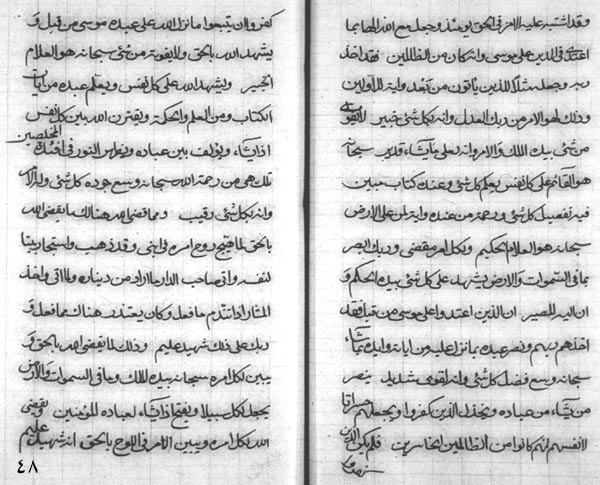 وقد اشتبه عليه الامر في الحق يومئذ وجعل مع الله الها بما
اعتدى في الدين على موسى وانه كان من الظالمين فقد اخذ
ربه وجعله مثلا للذين ياتون من بعد واية للاولين
وذلك لهو الامر من ربك العدل وانه بكل شئ خبير لا يفوته
من شئ بيده الملك والامر وانه لعلى ما يشاء قدير سبحانه
هو القائم على كل نفس يعلم كل شئ وعنده كتاب مبين
فيه تفصيل كل شئ ورحمة من عنده على الارض
سبحانه هو العلام الحكيم ولكل امر مقضى وربك البصر
بما في السموات والارض يشهد على كل شئ بيده الحكم و
ان اليه المصير ان الذين اعتدوا على موسى من قبل فقد
اخذهم ربهم ونصر عبده بما نزل عليه من اياته وايده بما شاء
سبحانه وسع فضله كل شئ وانه لقوى شديد ينصر
من يشاء من عباده ويخذل الذين كفروا ويجعلهم حسراتا
لانفسهم انهم كانوا من الظالمين الخاسرين فلم يكن الذين
كفروا ان يتبعوا ما نزل الله على عبده موسى من قبل و
يشهد الله بالحق ولا يفوته من شئ سبحانه هو العلام
الخبير ويشهد الله على كل نفس ويعلم عبده من ايات
الكتاب ومن العلم والحكمة ويقترن الله بين كل نفس
اذا يشاء ويؤلف بين عباده النور في افئدة المخلصين
تلك هي من رحمة الله سبحانه وسع جوده كل شئ وله الامر
وانه بكل شئ رقيب ومما قضى الله هنالك ما يقضى الله
بالحق لما هيج روح امره في ابنى وقد ذهب واستجار بيتا
لنفسه واتى صاحب الدار ما اراد من ديناره واخذ
المثار اذا تندم ما فعل وكان يعتذر هناك بما فعل و
ربك على ذلك شهيد عليم وذلك لما يقضى الله بالحق و
يبين لكل امره سبحانه بيده الملك وما في السموات والارض
يجعل لكل سبيلا ويفتح اذا يشاء لعباده المؤمنين ويقضى
الله لكل امره ويبين الامر في اللوح بالحق انه شهيد عليم
٤٨